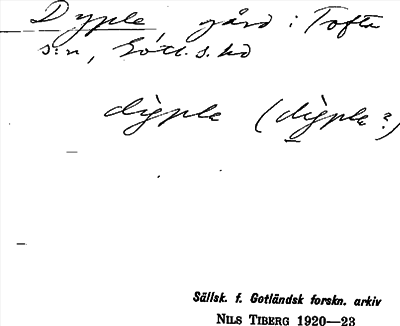 Dyple, gård i Tofta
s:n, Gotl. s. hd
dìyple (dìyple?)
Sällsk. f. Gotländsk forskn. arkiv
NILS TIBERG 1920—23